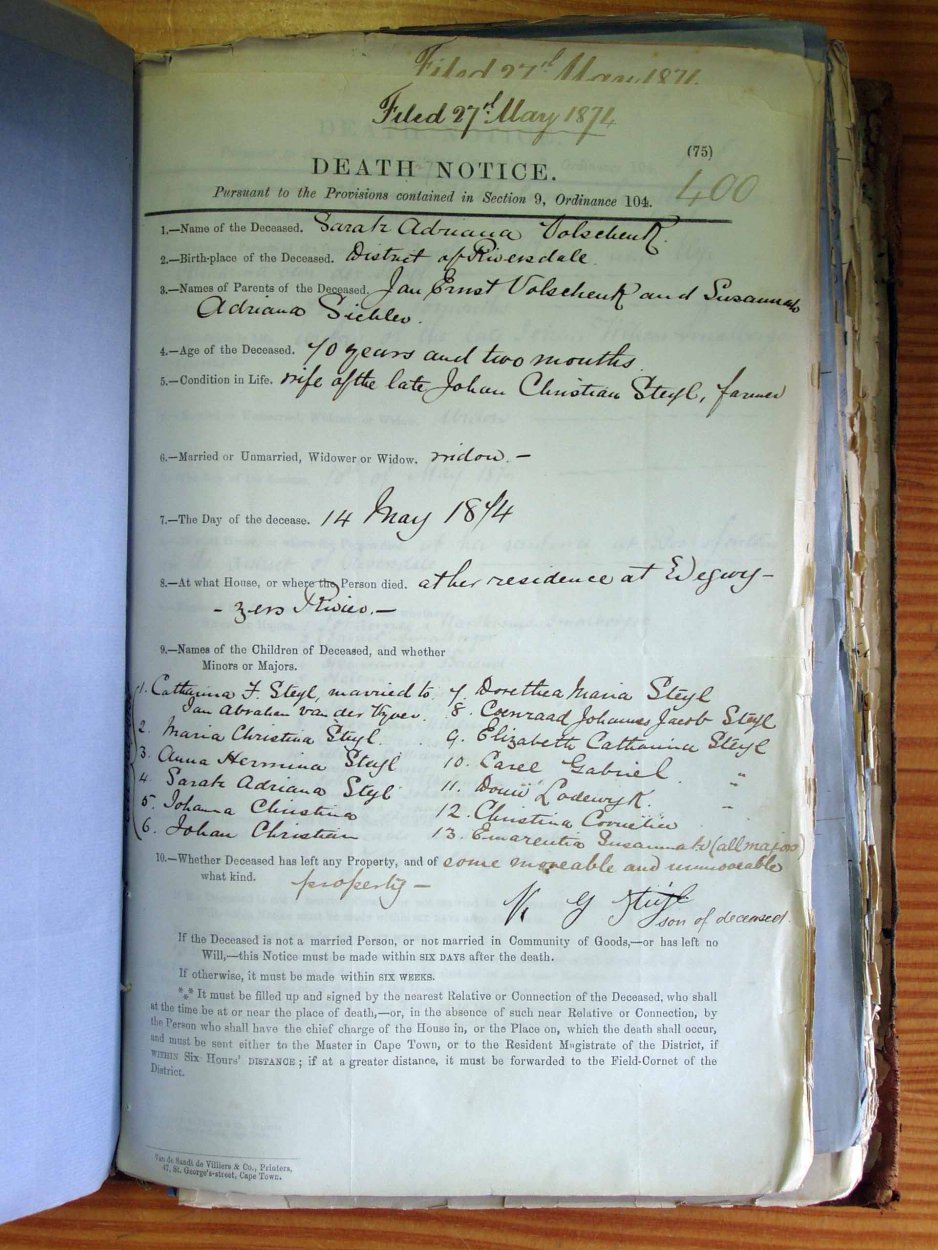 Filed 27th May 1871.
Filed 27th May 1874
(75)
DEATH NOTICE.
400
Pursuant to the Provisions contained in Section 9, Ordinance 104.
1.—Name of the Deceased. Sarah Adriana Volschenk.
2.—Birth-place of the Deceased. District of Riversdale.
3.—Names of Parents of the Deceased. Jan Ernst Volschenk and Susannah
Adriana
4.—Age of the Deceased. 70 years and two months.
5.—Condition in Life. wife of the late Johan Christian Steyl, farmer
6.—Married or Unmarried, Widower or Widow. widow. —
7.—The Day of the decease. 14 May 1874
8.—At what House, or where the Person died. at her residence at
- zers Rivier. —
9.—Names of the Children of Deceased, and whether
Minors or Majors.
1. Catharina F. Steyl, married to
Jan Abraham van der Vyver.
2. Maria Christina Steyl.
3. Anna Hermina Steyl
4. Sarah Adriana Steyl
5. Johanna Christina
6. Johan Christian
7 Dorothea Maria Steyl
8. Coenraad Johannes Jacob Steyl
9. Elizabeth Catharina Steyl
10. Carel Gabriel "
11. Lodewyk. "
12. Christina "
13. Emarentia Susannah (all majors)
10.—Whether Deceased has left any Property, and of some moveable and immoveable
what kind. property —
G Steyl
son of deceased.
If the Deceased is not a married Person, or not married in Community of Goods,—or has left no
Will,—this Notice must be made within SIX DAYS after the death.
If otherwise, it must be made within SIX WEEKS.
*** It must be filled up and signed by the nearest Relative or Connection of the Deceased, who shall
at the time be at or near the place of death,—or, in the absence of such near Relative or Connection, by
the Person who shall have the chief charge of the House in, or the Place on, which the death shall occur,
and must be sent either to the Master in Cape Town, or to the Resident Magistrate of the District, if
WITHIN SIX HOURS' DISTANCE; if at a greater distance, it must be forwarded to the Field-Cornet of the
District.
Van de Sandt de Villiers & Co., Printers,
47, St. George's-street, Cape Town.